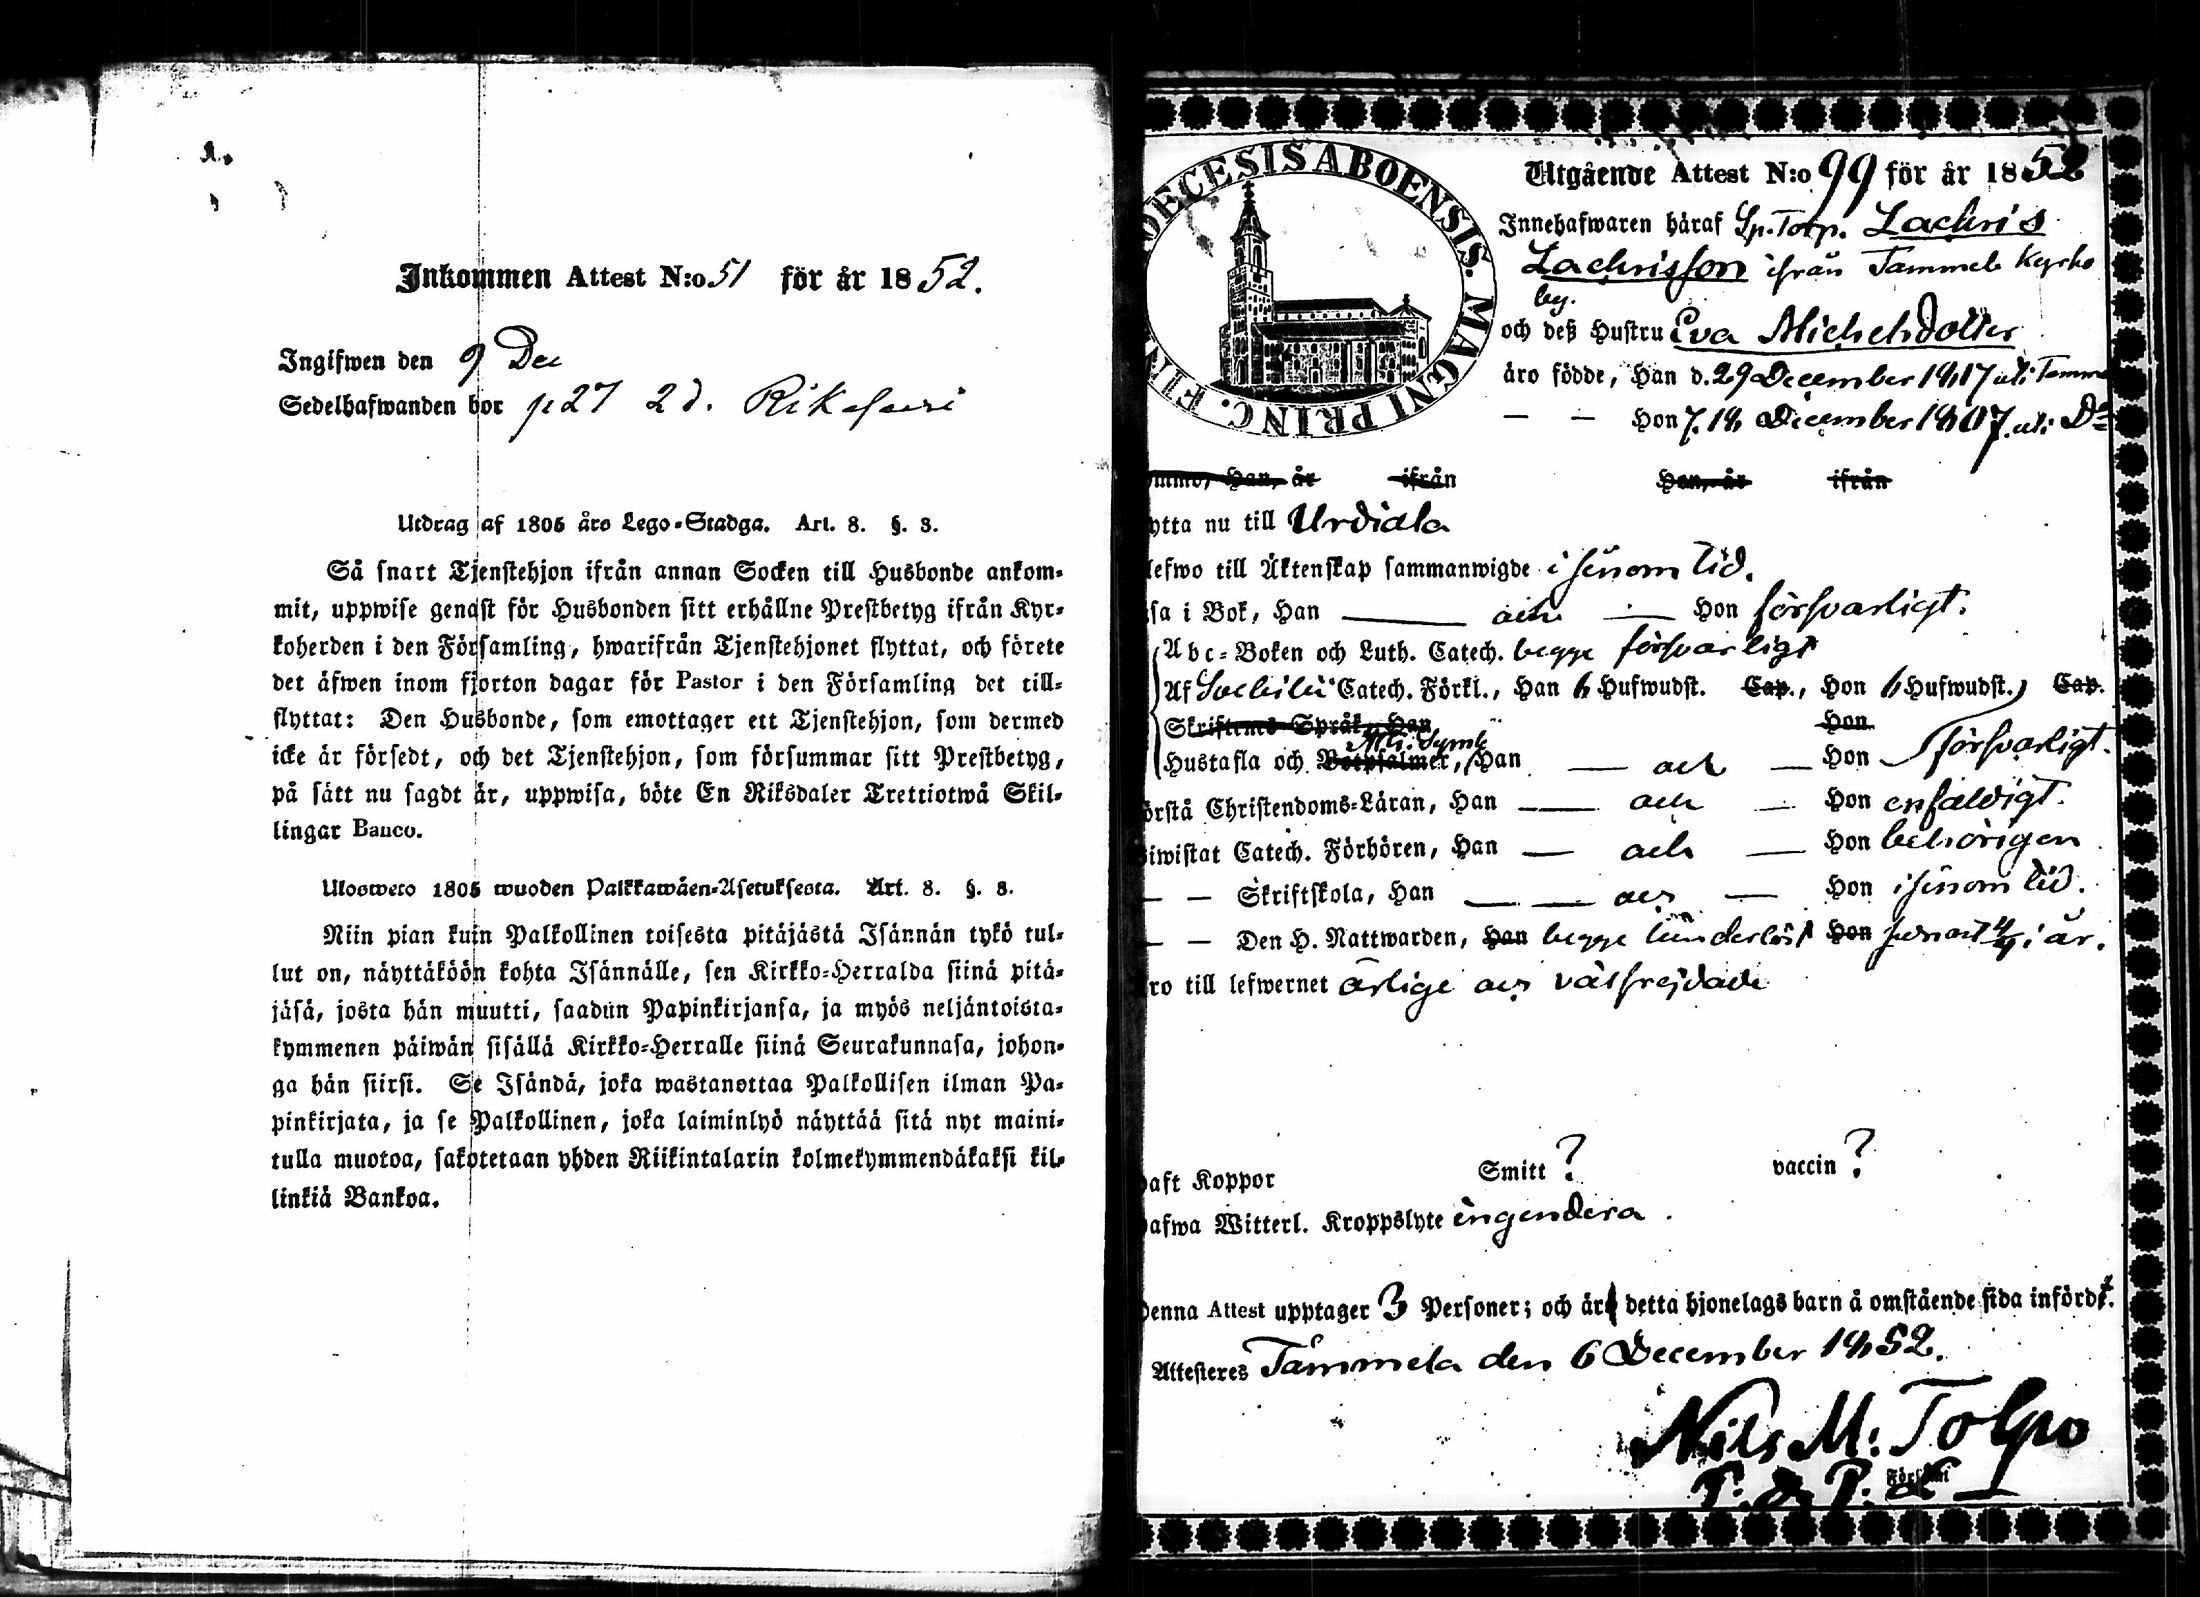 Inkommen Attest N:o 51 för år 1852.
Ingifwen den 9 Dec
Sedelhafwanden bor p 27 2d.
Utdrag af 1805 års Lego-Stadga. Art. 8. §. 8.
Så snart Tjenstehjon ifrån annan Socken till Husbonde ankom-
mit, uppwise genast för Husbonden sitt erhållne Prestbetyg ifrån Kyr-
koherden i den Församling, hwarifrån Tjenstehjonet flyttat, och förete
det äfwen inom fjorton dagar för Pastor i den Församling det till-
flyttat: Den Husbonde, som emottager ett Tjenstehjon, som dermed
icke är försedt, och det Tjenstehjon, som försummar sitt Prestbetyg,
på sätt nu sagdt är, uppwisa, böte En Riksdaler Trettiotwå Skil-
lingar Banco.
Ulosweto 1805 wuoden Palkkawäen-Asetuksesta. Art. 8. §. 8.
Niin pian kuin Palkollinen toisesta pitäjästä Isännän tykö tul-
lut on, näyttäköön kohta Isännälle, sen Kirkko-Herralda siinä pitä-
jäsä, josta hän muutti, saadun Papinkirjansa, ja myös neljäntoista-
kymmenen päiwän sisällä Kirkko-Herralle siinä Seurakunnasa, johon-
ga hän siirsi. Se Isändä, joka wastanottaa Palkollisen ilman Pa-
pinkirjata, ja se Palkollinen, joka laiminlyö näyttää sitä nyt maini-
tulla muotoa, sakotetaan yhden Riikintalarin kolmekymmendäkaksi kil-
linkiä Bankoa.
DECESIS ABOENSIS. MAGNI PRINC. FI
Utgående Attest N:o 99 för år 1852
Innehafwaren häraf Sp. Torp. Zachris
Zachrisson ifrån Tammela Kyrko
by.
och deß Hustru Eva Michelsdotter
äro födde, Han d. 29 December 1817 uti Tamme
— — Hon 7. 18 December 1807. uti Do
ommo, Han, år ifrån Hon, år ifrån
ytta nu till Urdiala
lefwo till Äktenskap sammanwigde i sinom tid.
sa i Bok, Han — och — Hon försvarligt.
Abc-Boken och Luth. Catech. begge försvarligt
Af Svebilii Catech. Förkl., Han 6 Hufwudst. Cap., Hon 6 Hufwudst., Cap.
Skriftens Språk, Han Hon
Ath. Symb
Hustafla och Botpsalmer, Han — och — Hon försvarligt.
örstå Christendoms-Läran, Han — och — Hon enfaldigt.
iwistat Catech. Förhören, Han — och — Hon behörigen
— — Skriftskola, Han — — och — Hon i sinom tid.
— — Den H. Nattwarden, Han begge Hon senast i år.
ro till lefwernet ärlige och välfrejdade
aft Koppor Smitt ? vaccin ?
afwa Witterl. Kroppslyte ingendera.
Denna Attest upptager 3 Personer; och är detta hjonelags barn å omstående sida infördt.
Attesteres Tammela den 6 December 1852.
Nils M: Tolpo
P: & P: